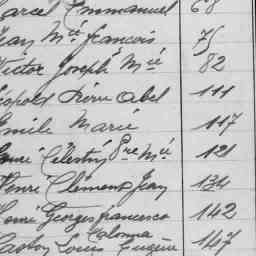 arcel Emmanuel 68
Jean Mie François 75
Victor Joseph Mie 82
éopold Pierre Abel 111
Emile Marie 117
Henri Célestin Pre Mie 121
Henri Clément Jean 134
Henri Georges Francesco 142
Gaston Louis Calonna Eugène 147